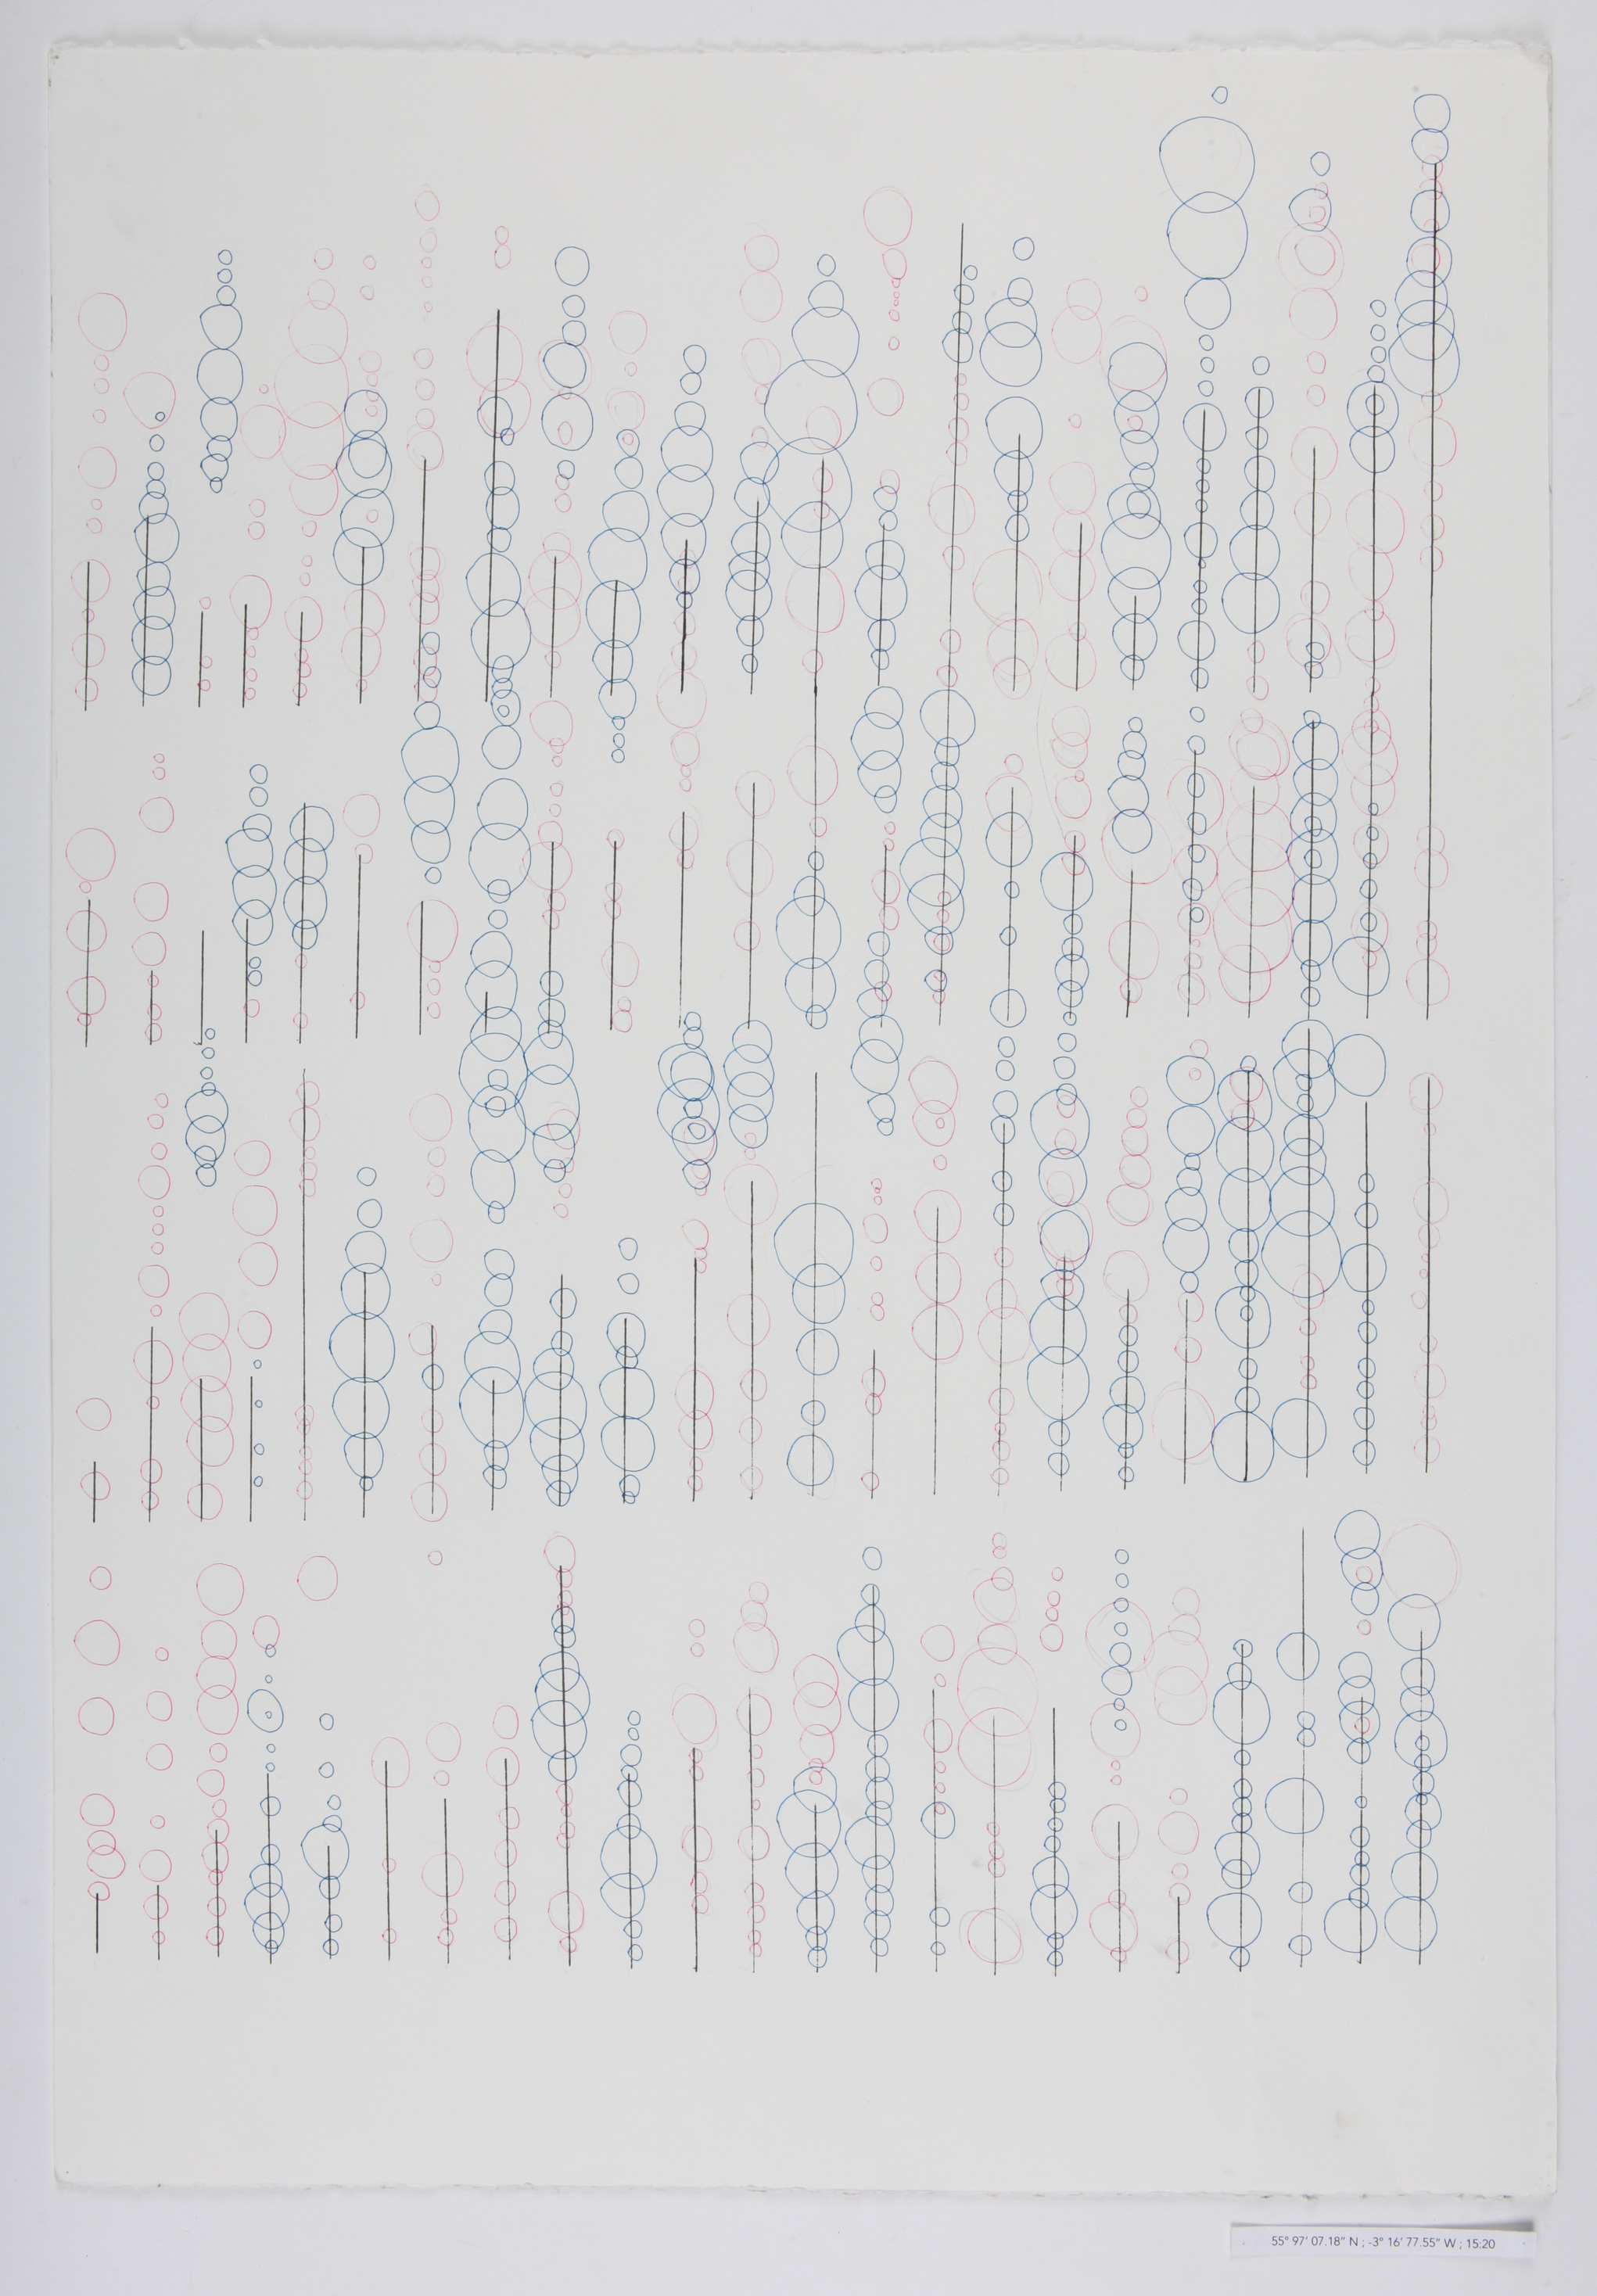 55° 97' 07.18" N ; -3° 16' 77.55" W ; 15:20